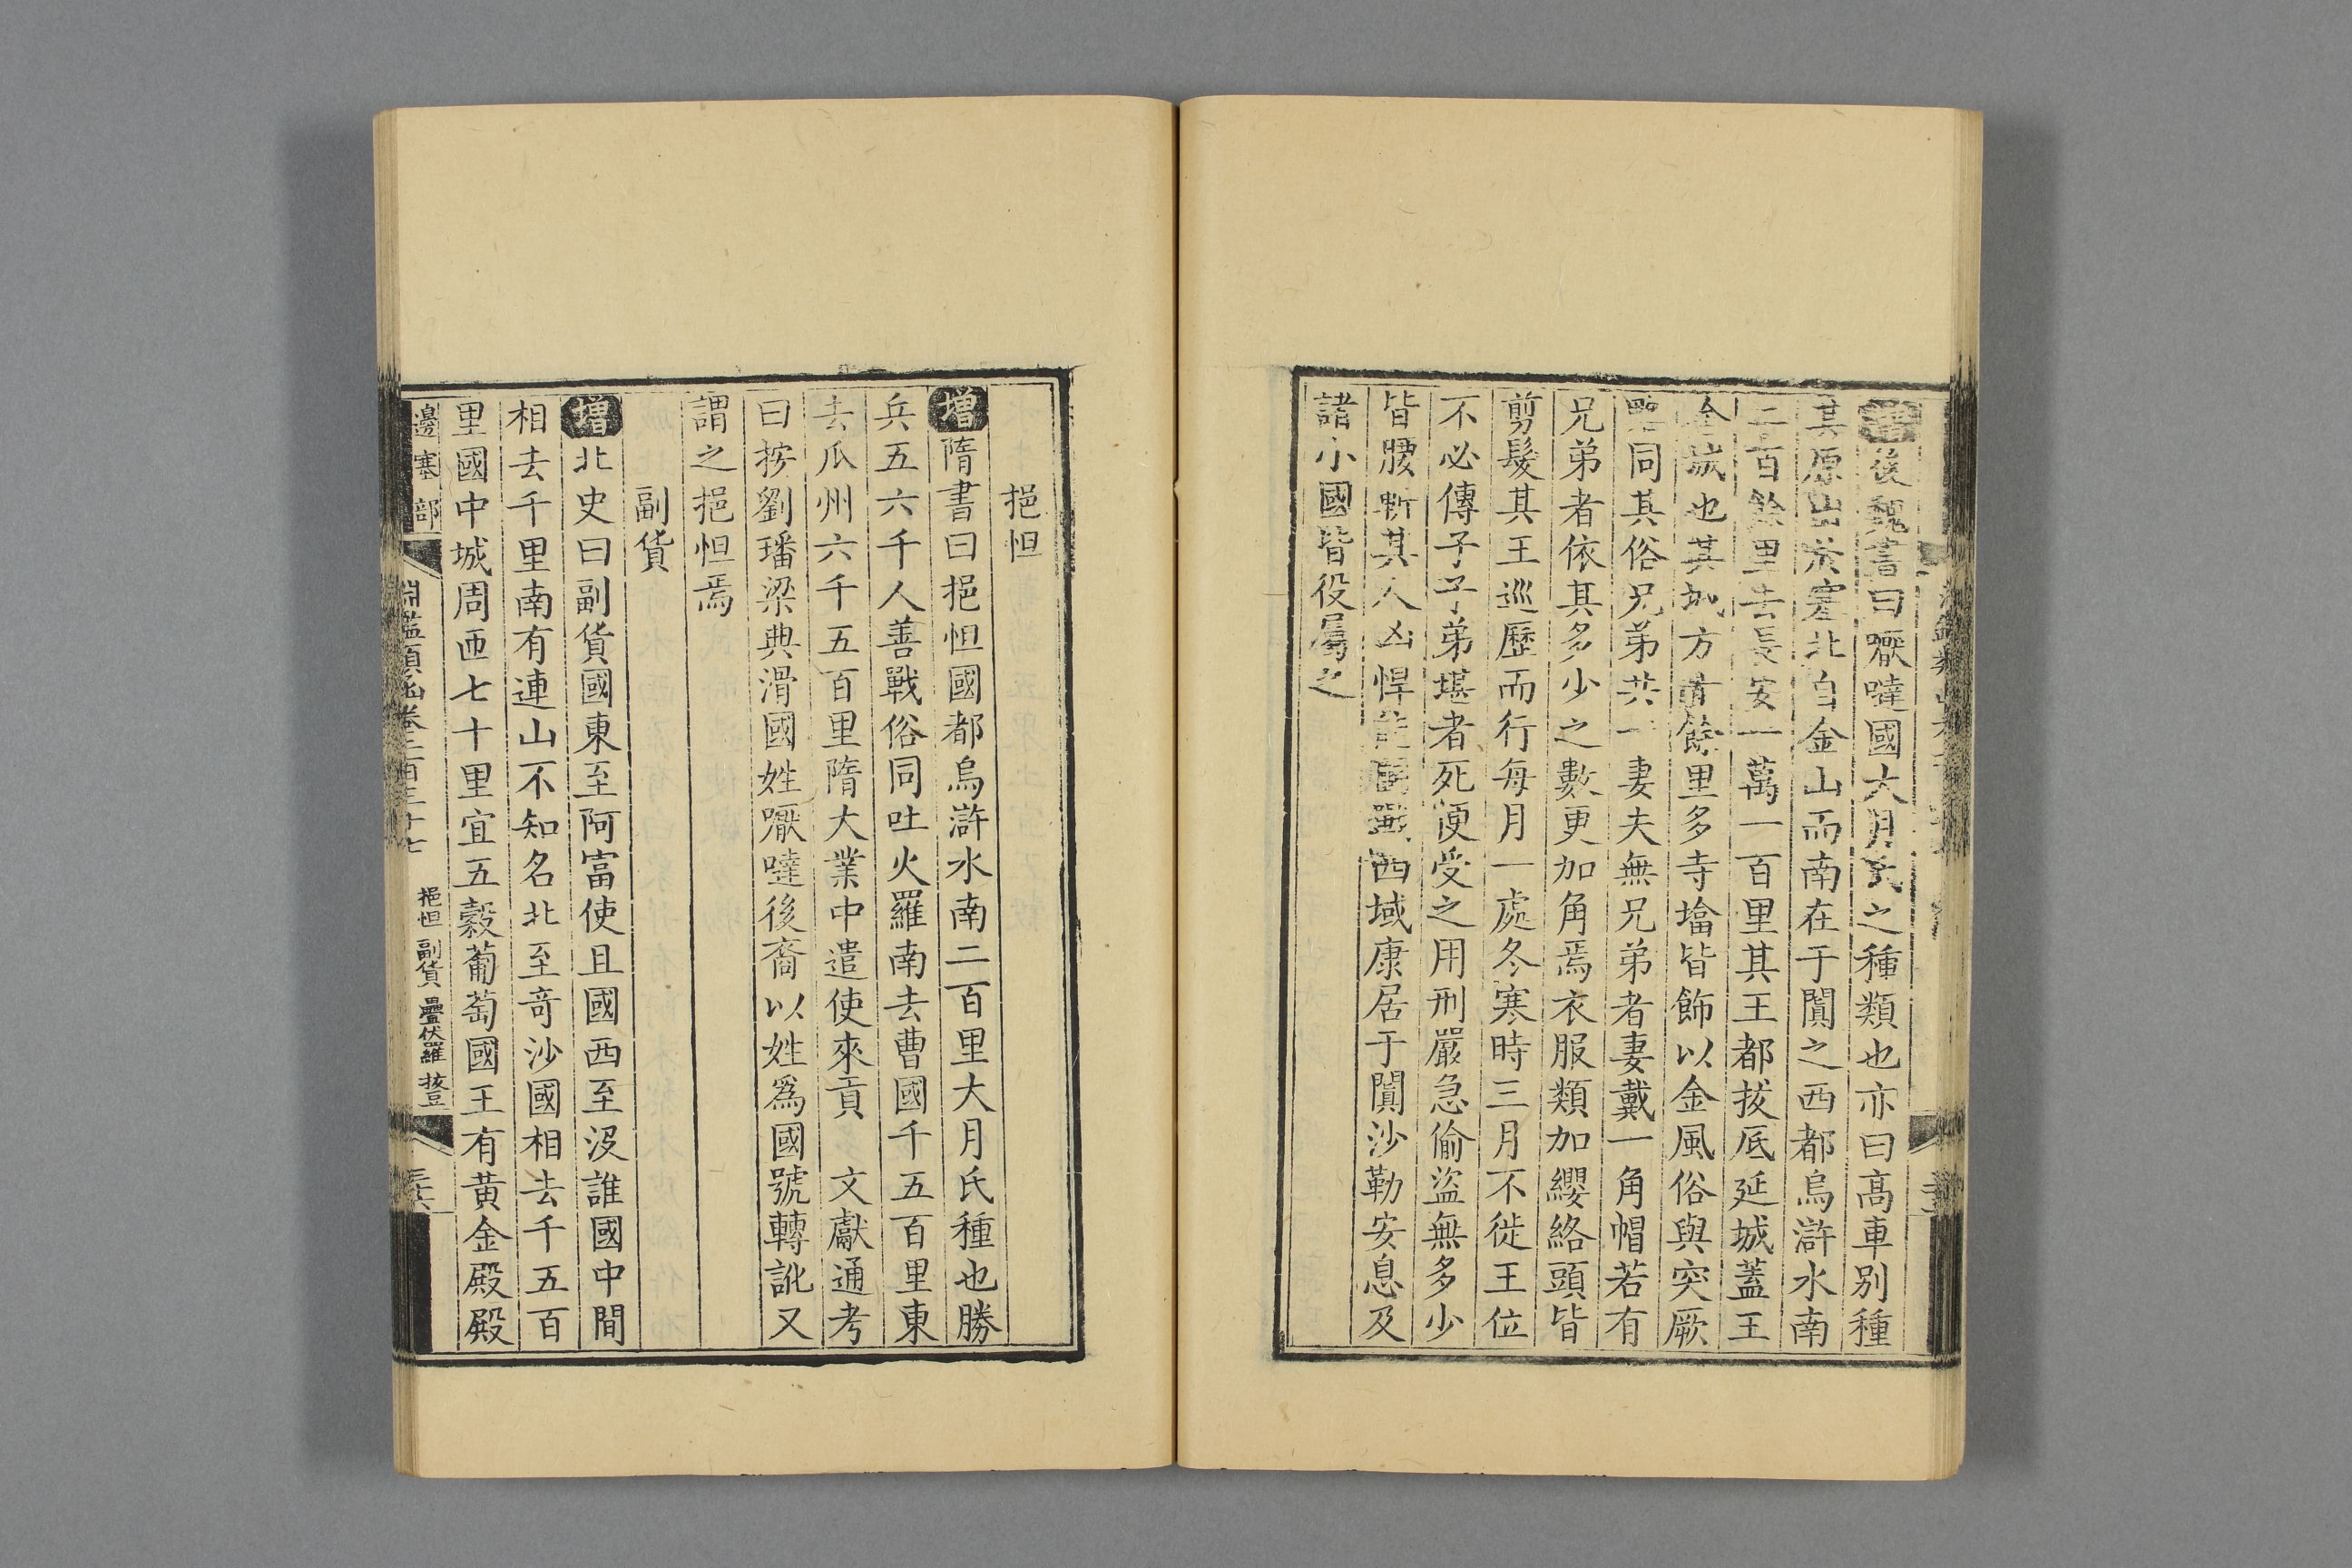 增後魏書曰噘噠國大月氏之種類也亦曰高車別種
其原出於塞北自金山而南在于闐之西都烏滸水南
二百餘里去長安一萬一百里其王都拔底延城蓋王
舍城也其城方十餘里多寺墖皆飾以金風俗與突厥
畧同其俗兄弟共一妻夫無兄弟者妻戴一角帽若有
兄弟者依其多少之數更加角焉衣服類加纓絡頭皆
剪髮其王巡歷而行每月一處冬寒時三月不徙王位
不必傳子子弟堪者死便受之用刑嚴急偷盜無多少
皆腰斬其人凶悍能鬬戰西域康居于闐沙勒安息及
諸小國皆役屬之
挹怛
增隋書曰挹怛國都烏滸水南二百里大月氏種也勝
兵五六千人善戰俗同吐火羅南去曹國千五百里東
去瓜州六千五百里隋大業中遣使來貢 文獻通考
曰按劉璠梁典滑國姓噘噠後裔以姓爲國號轉訛又
謂之挹怛焉
副貨
增北史曰副貨國東至阿富使且國西至沒誰國中間
相去千里南有連山不知名北至竒沙國相去千五百
里國中城周匝七十里宜五穀葡萄國王有黃金殿殿
邊塞部 淵鑑類函卷二百三十七 挹怛 副貨 疊伏羅 拔豆 三六